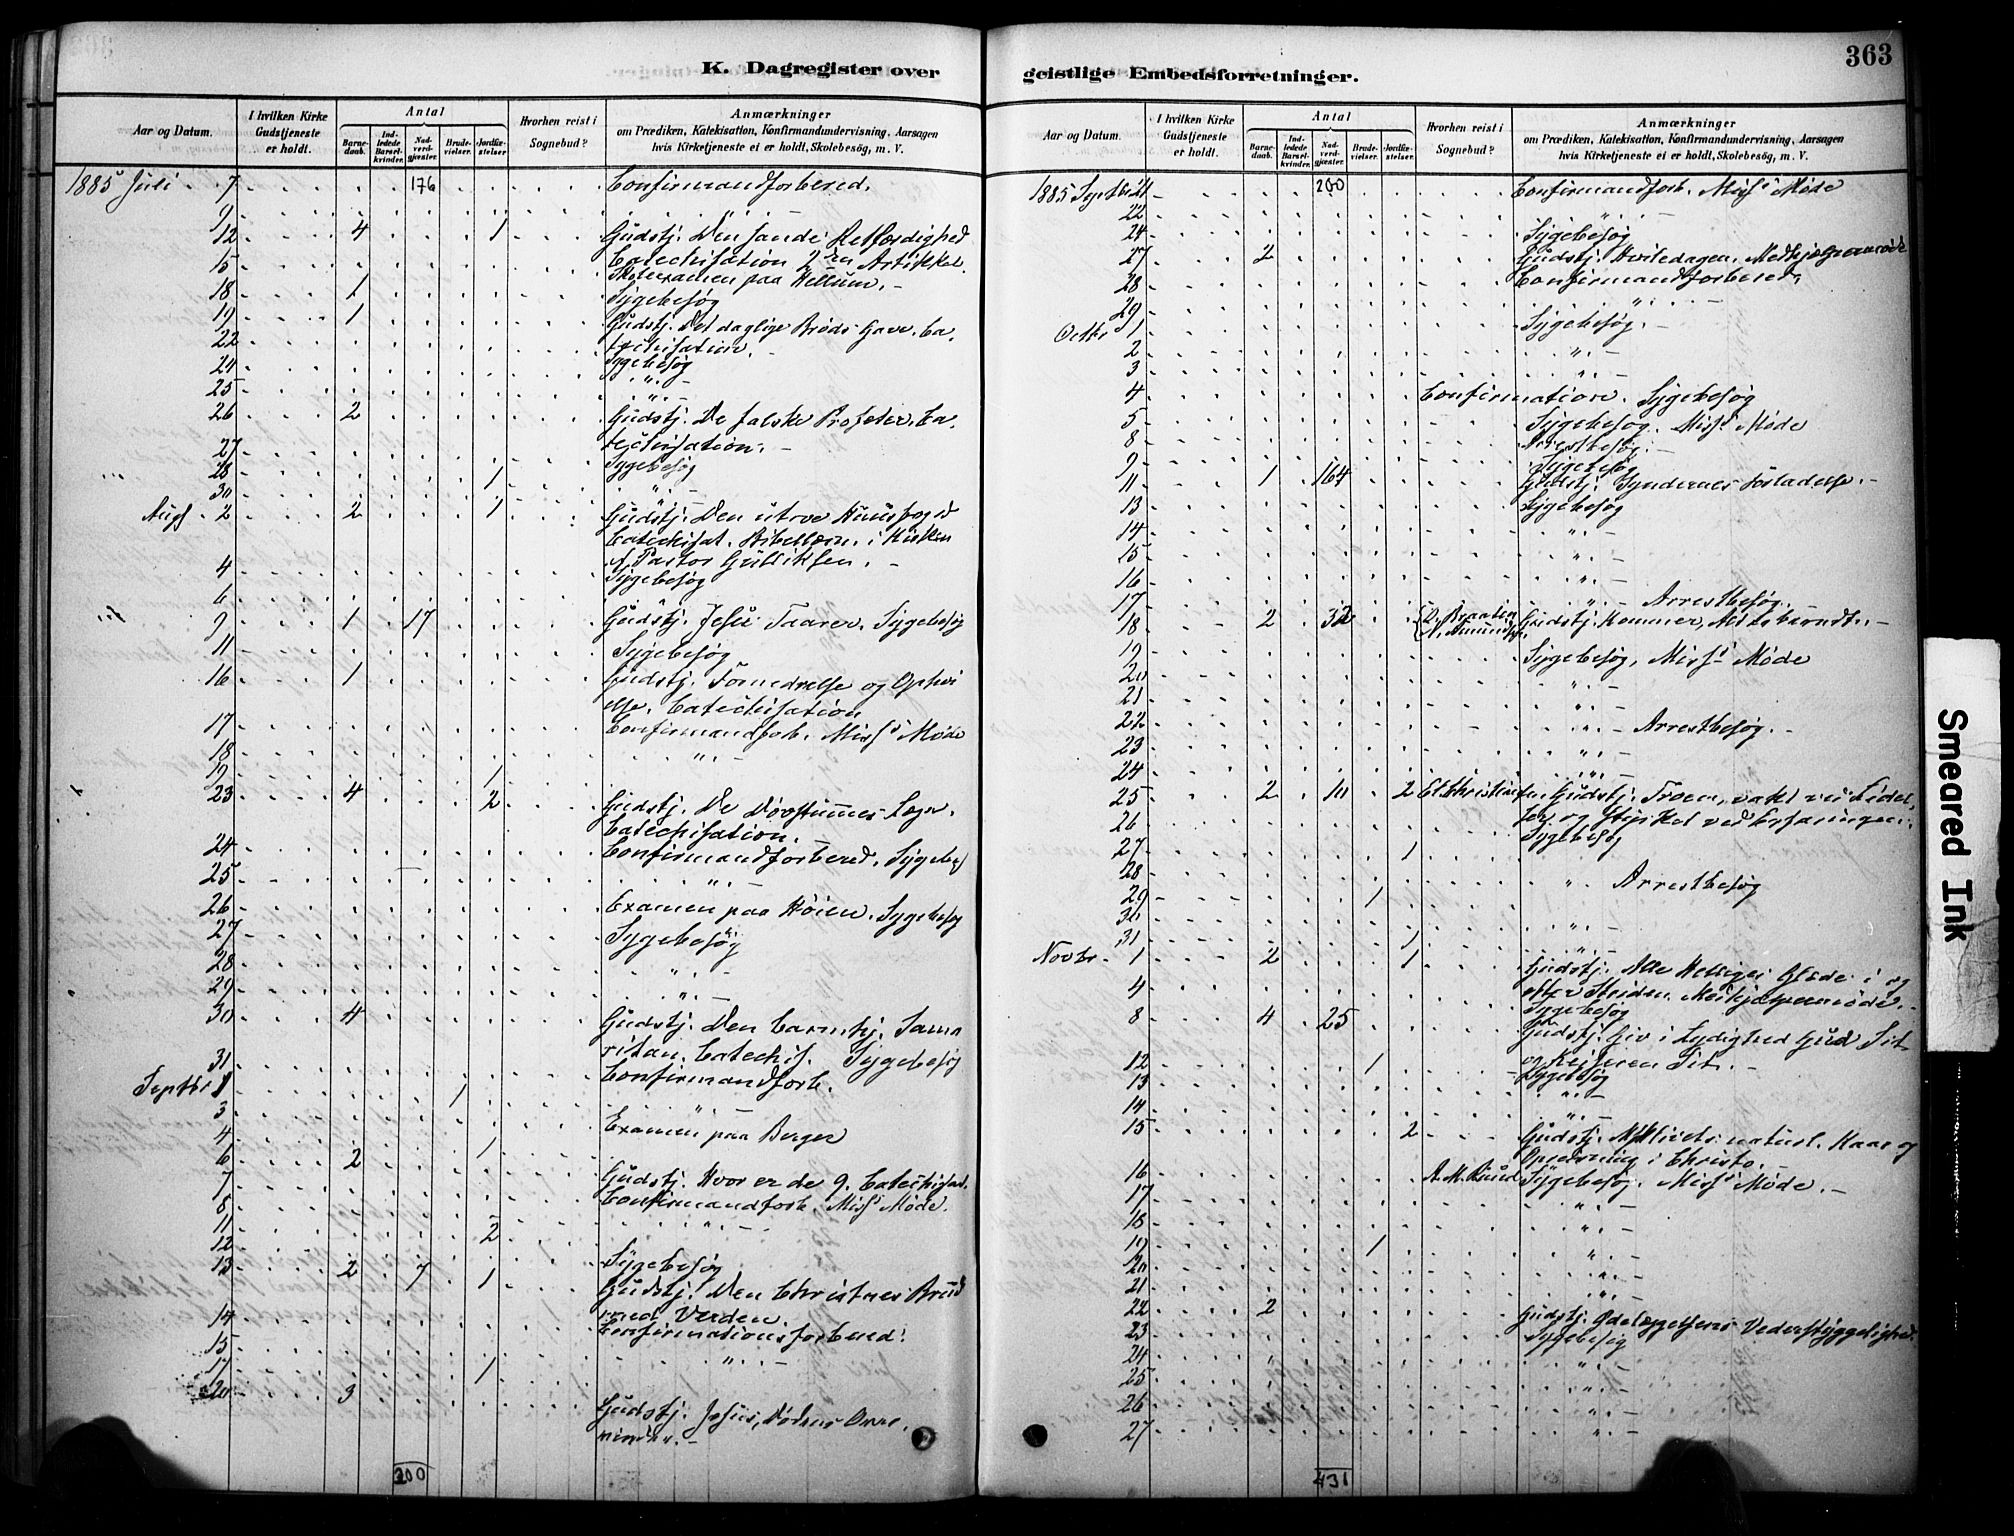 363
K. Dagregister over
geistlige Embedsforretninger.
Aar og Datum.
I hvilken Kirke Gudstjeneste er holdt.
Antal
Barnedaab.
Indledede Barselkvinder.
Nadverdgjæster.
Brudevielser.
Jordfæstelser.
Hvorhen reist i Sognebud?
Anmærkninger
om Prædiken, Katekisation, Konfirmandundervisning, Aarsagen
hvis Kirketjeneste ei er holdt, Skolebesög, m. V.
1885 Juli 7 176 Confirmandforbered.
9 " –
12 4 1 Gudstj. Den sande Retfærdighed
Catechisation 2den Artikkel.
15 Skoleexamen paa Hellum. –
18 1 Sygebesøg
19 1 Gudstj. Det daglige Brøds Gave. Ca-
techisation. –
22 Sygebesøg
24 " –
25
26 2 Gudstj. De falske Profeter. Ca-
techisation. –
27 Sygebesøg
28 1 " –
30
Augs. 2 2 1 Gudstj. Den utroe Huusfoged
Catechisat. Bibellæsn. i Kirken
af Pastor Gulliksen. –
4 Sygebesøg
6
9 1 17 Gudstj. Jesu Taarer. Sygebesøg
11 Sygebesøg
16 1 Gudstj. Fornedrelse og Ophøi-
else. Catechisation
17 Confirmandforb. Miss. Møde
18 " –
19 1
23 4 2 Gudstj. De Døvstummes Sogn.
Catechisation.
24 Confirmandforbered. Sygebes.
25 " –
26 Examen paa Høien. Sygebesøg
27 Sygebesøg
28 " –
29 " –
30 4 Gudstj. Den barmhj. Sama-
ritan. Catechis. Sygebesøg
31 Confirmandforb.
Septbr 1 1 " –
3 Examen paa Berger
4 1
6 2 Gudstj. Hvor er de 9. Catechisat.
7 Confirmandforb. Miss. Møde.
8 " –
11 2
12 Sygebesøg
13 2 7 1 Gudstj. Den Christnes Brud
med Verden.
14 Confirmationsforbered.
15 " –
17 1
20 3 Gudstj. Jesus, Dødens Over-
vinder. –
200
Aar og Datum.
I hvilken Kirke Gudstjeneste er holdt.
Antal
Barnedaab.
Indledede Barselkvinder.
Nadverdgjæster.
Brudevielser.
Jordfæstelser.
Hvorhen reist i Sognebud?
Anmærkninger
om Prædiken, Katekisation, Konfirmandundervisning, Aarsagen
hvis Kirketjeneste ei er holdt, Skolebesög, m. V.
1885 Septbr 21 200 Confirmandforb. Miss. Møde
22 " –
24 Sygebesøg
27 2 Gudstj. Hviledagen. Medhjælpermøde
28 Confirmandforbered.
29 " –
Octbr 1 Sygebesøg. –
2 " –
3 " –
4 Confirmation. Sygebesøg
5 Sygebesøg. Miss. Møde
8 Arrestbesøg. –
9 Sygebesøg
11 1 164 Gudstj. Syndernes Forladelse. –
13 Sygebesøg
14 " –
15 " –
16 " –
17 " – Arrestbesøg.
18 2 32 Gudstj. Kommer,
19 Sygebesøg, Miss. Møde
20 " –
21 " –
22 " – Arrestbesøg. –
23 " –
24 " –
25 2 10 2 Gudstj. Troen, vakt ved
og styrket ved Erfaringen.
26 Sygebesøg
27 1
28 " Arrestbesøg
29 1
30 " –
31 1 " –
Novbr. 1 2 1 Gudstj. Alle Helliges Glæde i og
efter Striden. Medhjælpermøde. –
4 Sygebesøg
8 4 25 Gudstj. Giv i Lydighed Gud Sit
og Keiseren Sit. –
12 1 Sygebesøg
13 " –
14 " –
15 2 Gudstj. naturl. Kaar og
Opreisning i Christo. –
16 A. M. Knud Sygebesøg. Miss. Møde. –
17 " –
18 " –
19 1 " –
20 " –
21 " –
22 2 Gudstj. Ødelæggelsens Vederstyggelighed
23 Sygebesøg
24 " –
25 " –
26 " –
27
431
Smeared Ink